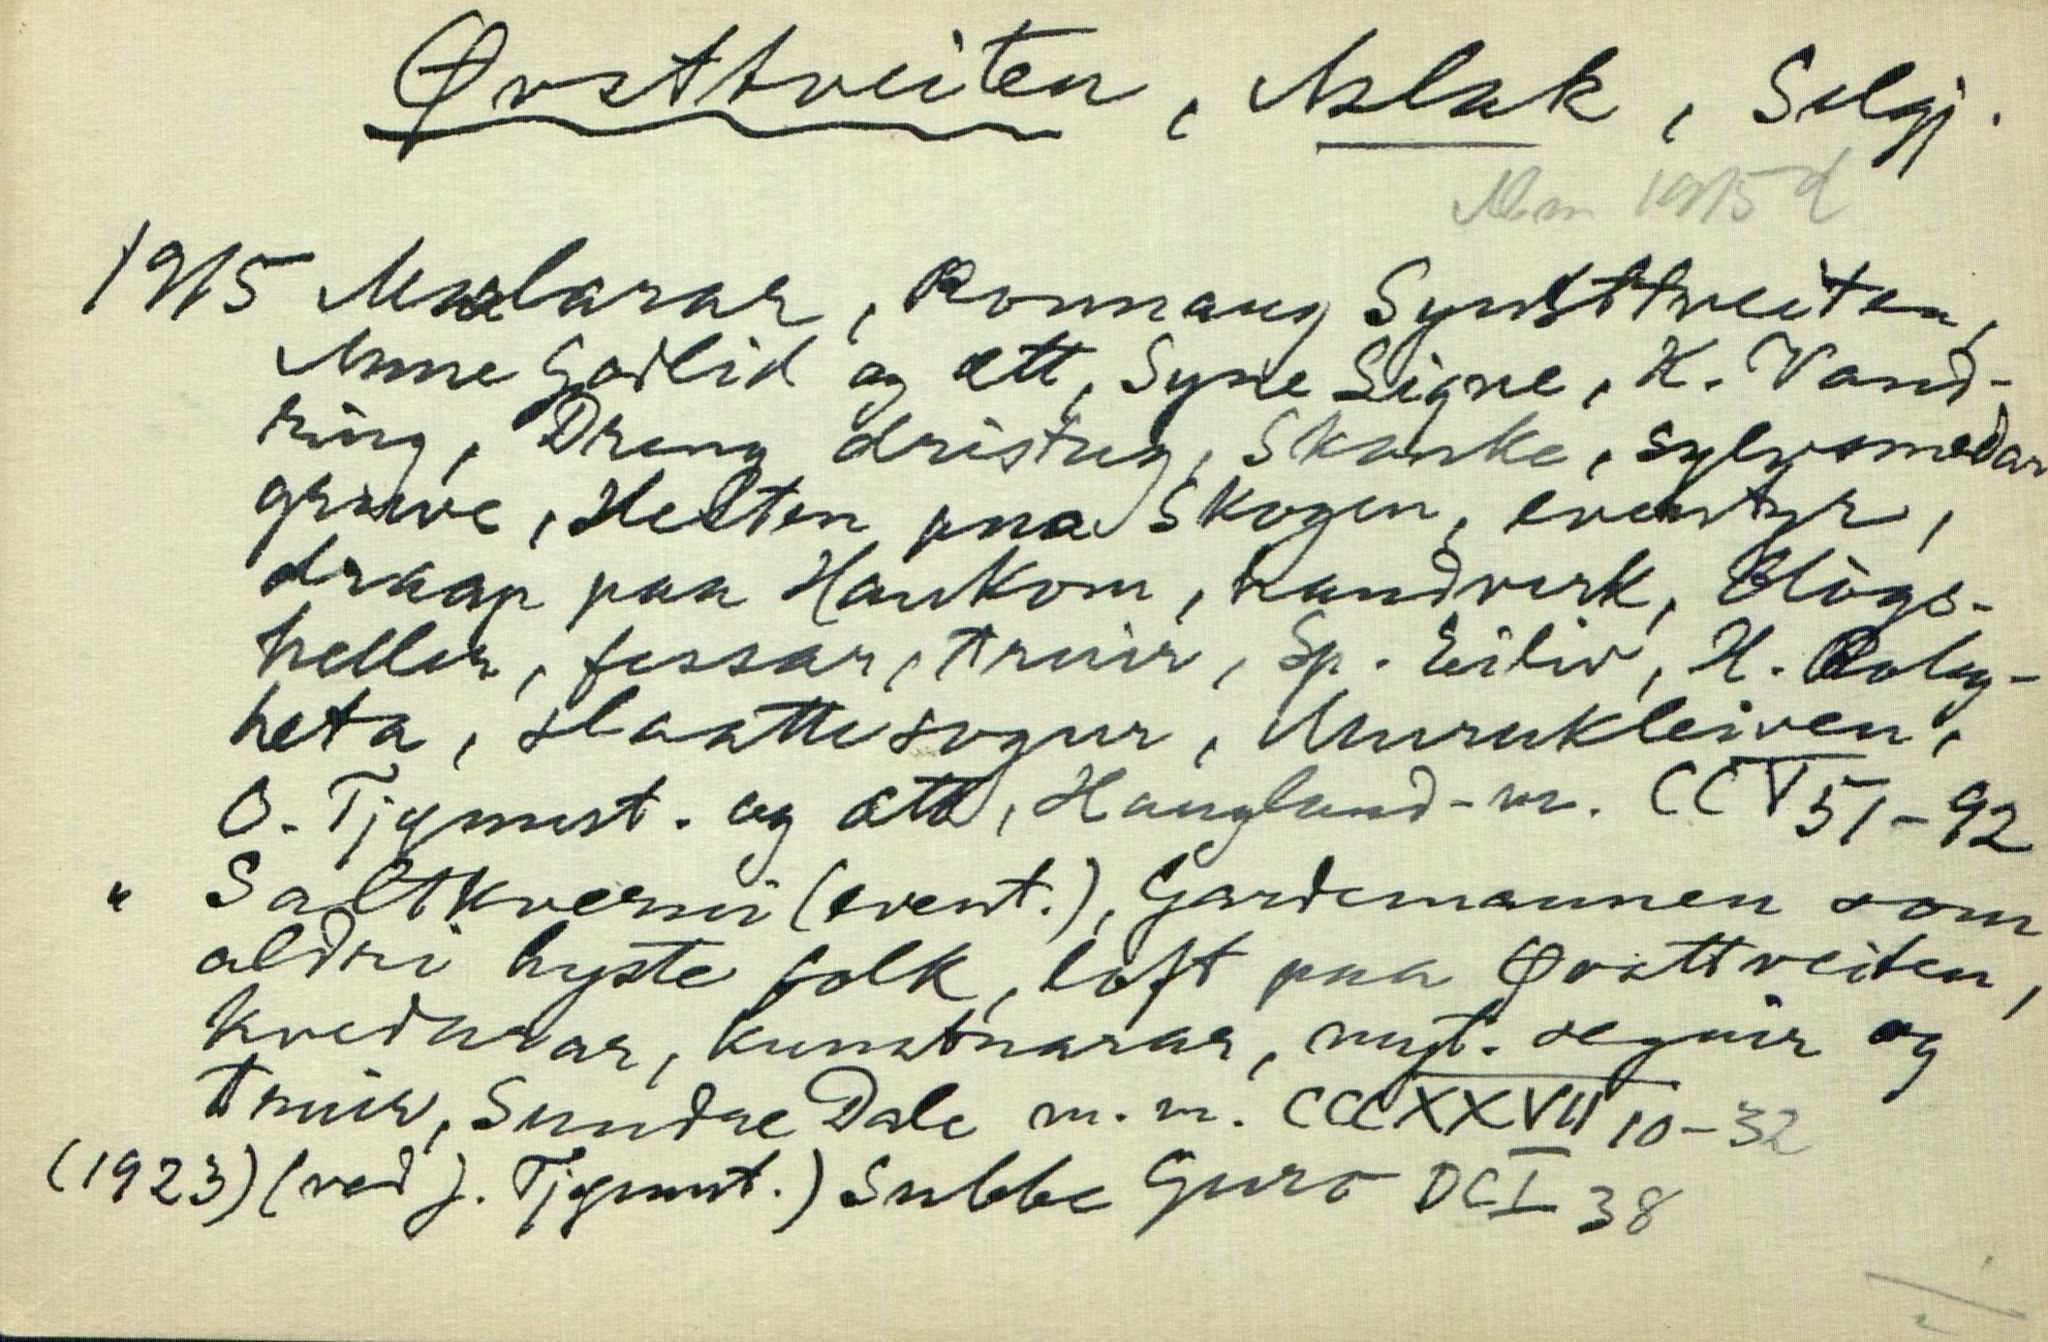 Øvsttveiten, Aslak, Selgj.
1915 d
1915 Maalarar, Ronnaug Synsttveiten,
Anne Godlid og ætt, Syne Signe, H. Vand-
ring, Dreng dristug, Skanke, sylvsmedar
gruve, Helten paa Skogen, eventyr,
draap paa Haukom, handverk, Hògs-
heller, fossar, truir, Sp. Eiliv, H. Roleg-
heta, slaattesogur, Murukleiven,
O. Tjønnst. og ætt, Haugland-m. CCV 51-92
" Saltkverni (event.), Gardemannen som
aldri hyste folk, loft paa Øvsttveiten,
kvedarar, kunstnarar, myt. segnir og
truir, Sundre Dale m.m. CCCXXVII 10-32
(1923) (ved J. Tjønnst.) Subbe Guro DCI 38